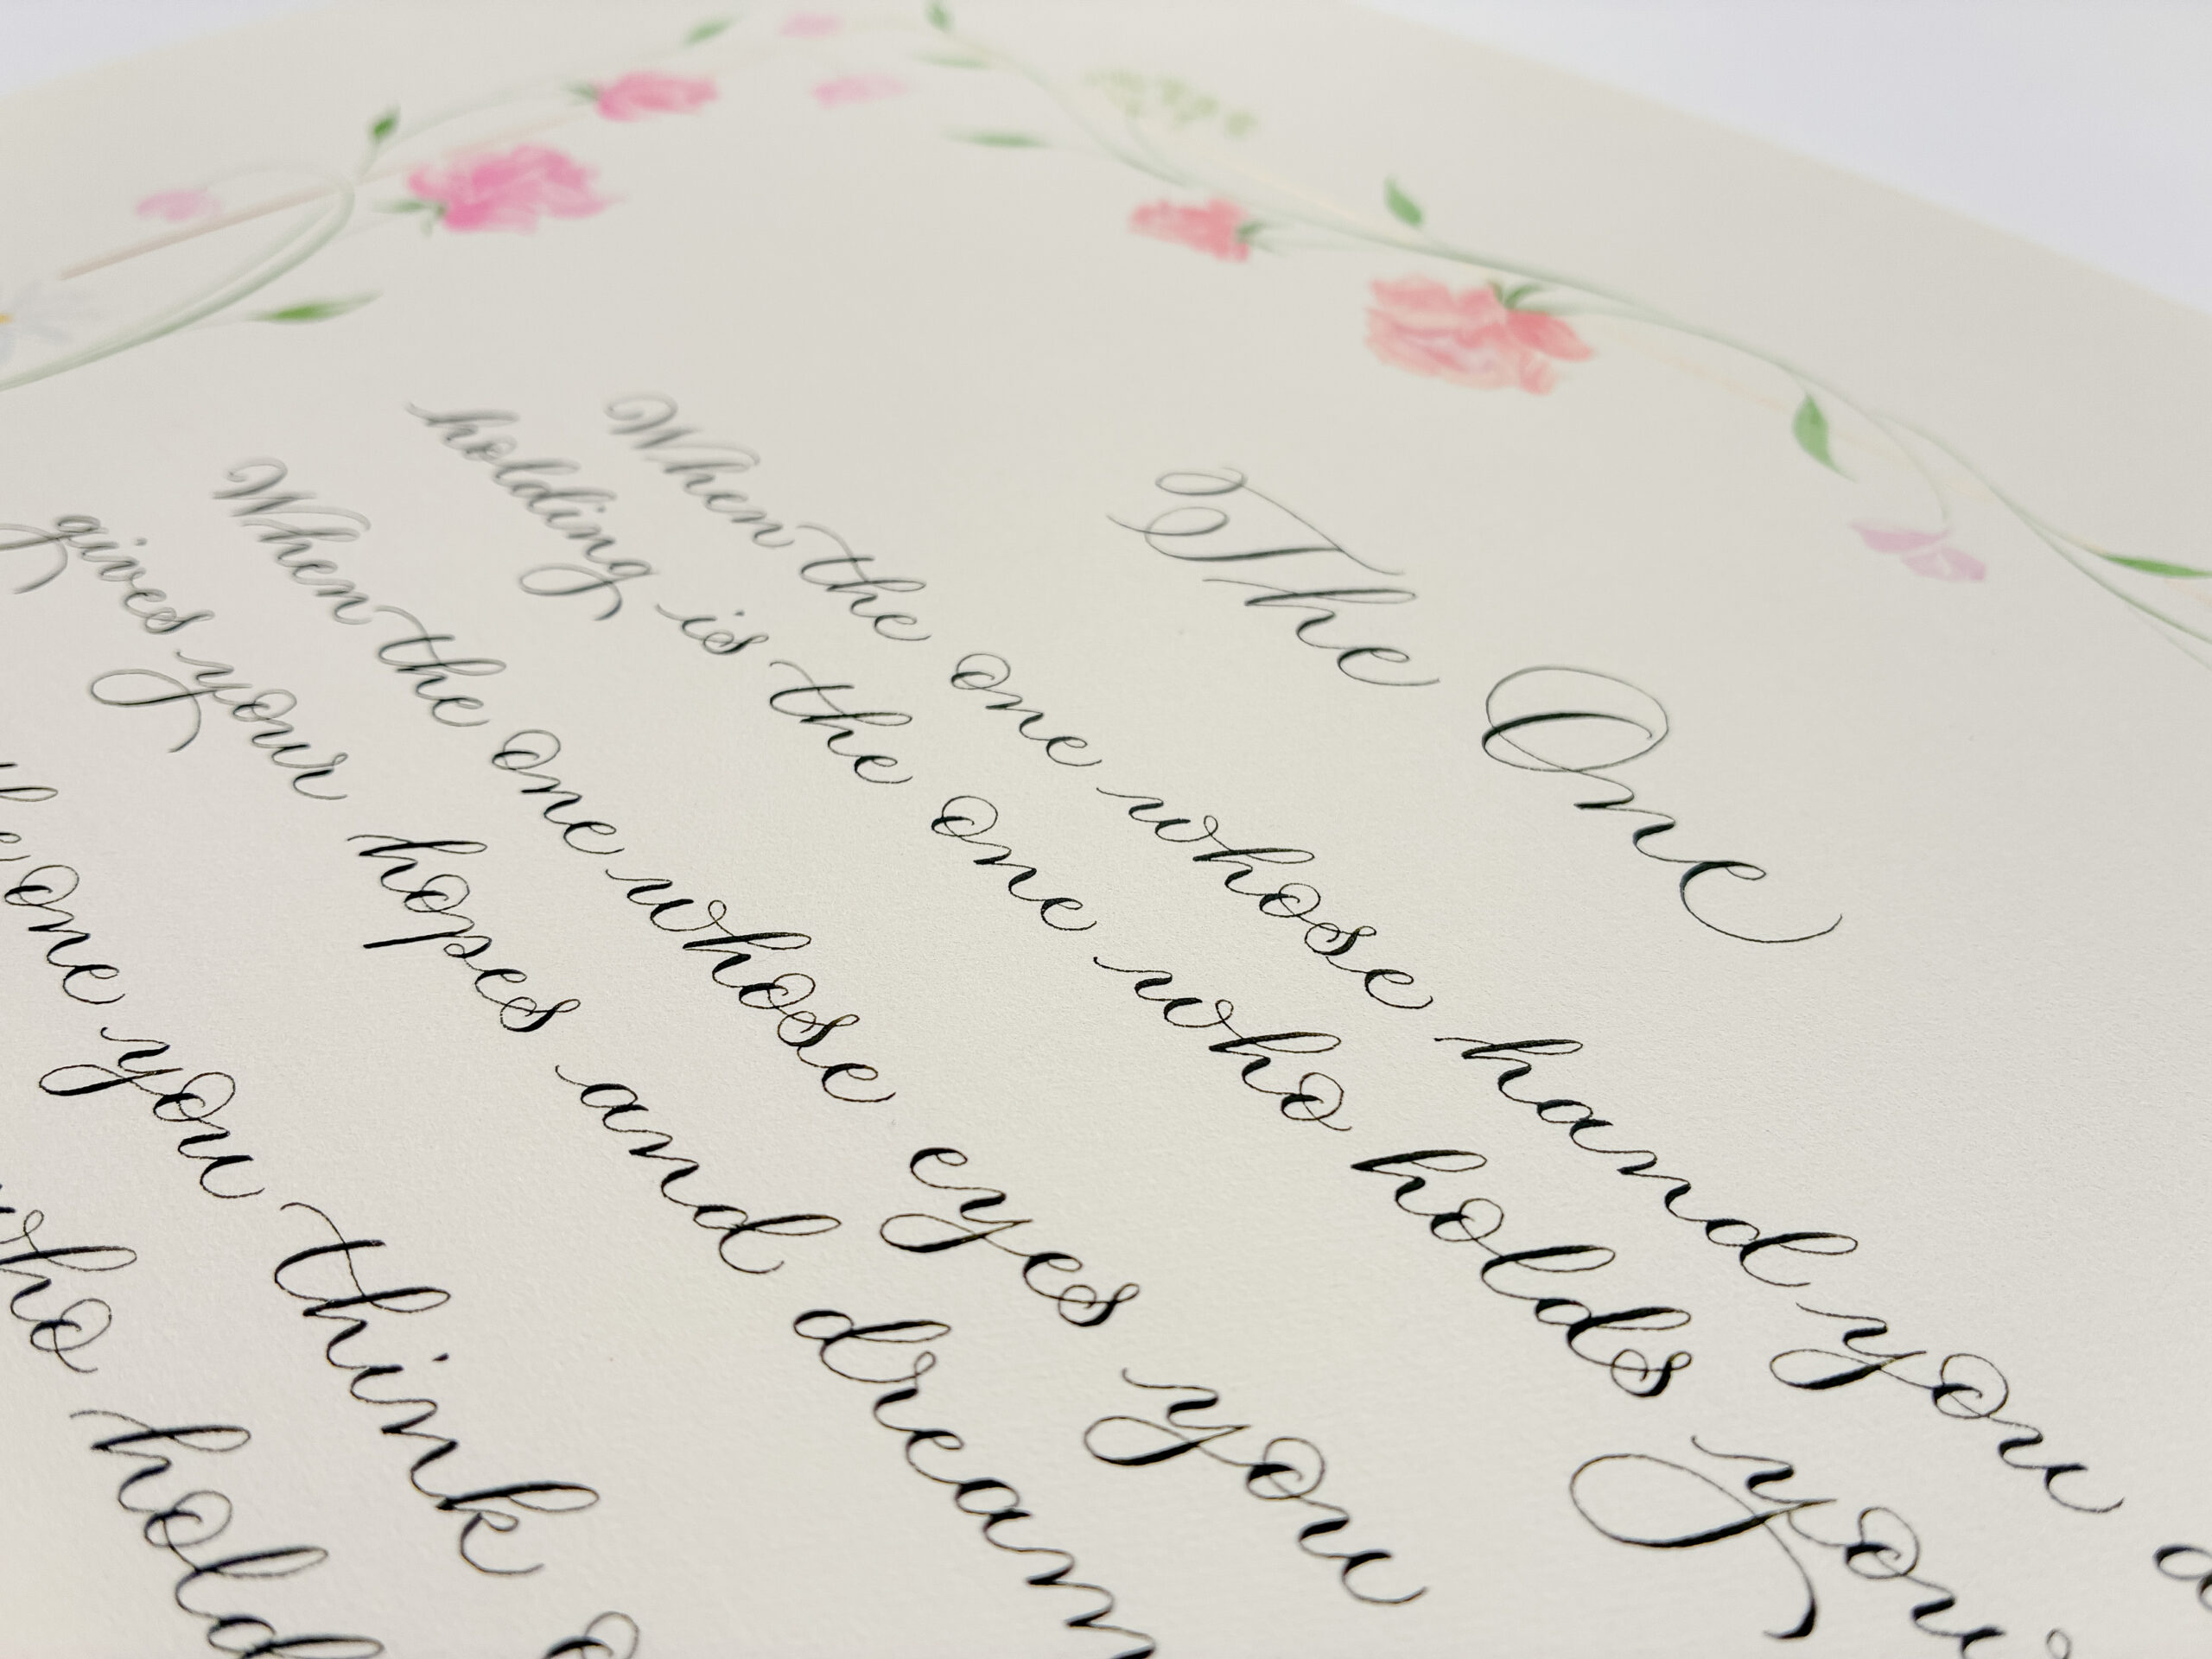 The One
When the one whose hand you
holding is the one who holds you
When the one whose eyes you
gives your hopes and dream
one you think
who hold